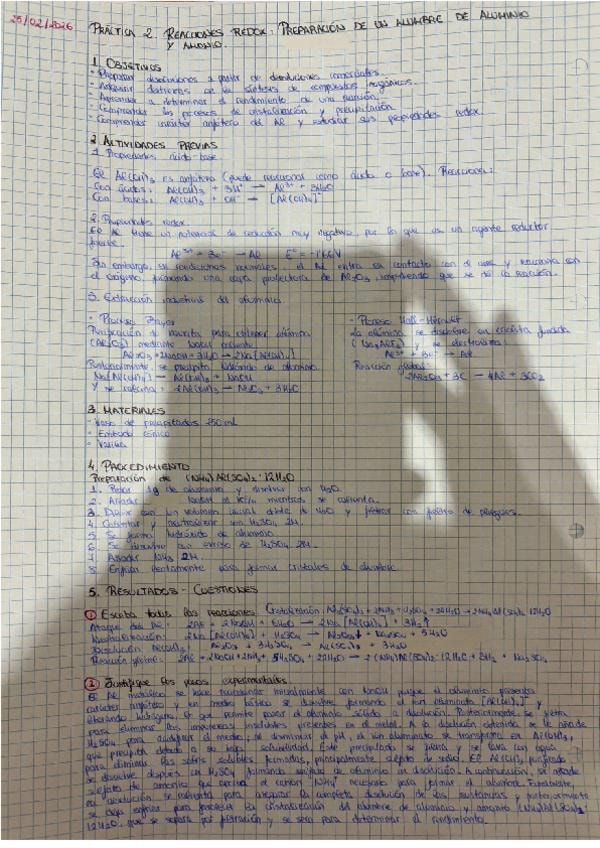 25/02/2026
PRÁCTICA 2. REACCIONES REDOX: PREPARACIÓN DE UN ALUMBRE DE ALUMINIO
Y AMONIO.
1. OBJETIVOS
- Preparar disoluciones a partir de disoluciones comerciales.
- Adquirir en la síntesis de compuestos inorgánicos.
- Aprender a determinar el rendimiento de una reacción.
- Comprender los procesos de cristalización y precipitación.
- Comprender carácter anfótero del Al y estudiar sus propiedades redox.
2. ACTIVIDADES PREVIAS
1. Propiedades ácido-base
El Al(OH)₃ es anfótero (puede reaccionar como ácido o base). Reacciones:
Con ácidos: Al(OH)₃ + 3H⁺ → Al³⁺ + 3H₂O
Con bases: Al(OH)₃ + OH⁻ → [Al(OH)₄]⁻
2. Propiedades redox.
El Al tiene un potencial de reducción muy negativo, por lo que es un agente reductor
fuerte.
Al³⁺ + 3e⁻ → Al E° = -1'66V
Sin embargo, en condiciones normales, el Al entra en contacto con el aire y reacciona con
el oxígeno, formando una capa protectora de Al₂O₃ impidiendo que se dé la reacción.
3. Extracción industrial del aluminio
- Proceso Bayer
Purificación de bauxita para obtener alúmina
(Al₂O₃) mediante NaOH caliente
Al₂O₃ + 2NaOH + 3H₂O → 2Na[Al(OH)₄]
Posteriormente, se precipita hidróxido de aluminio.
Na[Al(OH)₄] → Al(OH)₃ + NaOH
Y se calcina: 2Al(OH)₃ → Al₂O₃ + 3H₂O
- Proceso Hall-Héroult
La alúmina se disuelve en criolita fundida
(Na₃AlF₆) y se electroliza:
Al³⁺ + 3e⁻ → Al
Reacción global:
2Al₂O₃ + 3C → 4Al + 3CO₂
3. MATERIALES
- Vaso de precipitados 250 mL
- Embudo cónico
- Varilla
4. PROCEDIMIENTO
Preparación de (NH₄)Al(SO₄)₂·12H₂O
1. Pesar 1g de aluminio y disolver con H₂O.
2. Añadir NaOH mientras se calienta.
3. Diluir con un volumen igual de H₂O y filtrar con filtro de pliegues.
4. Calentar y neutralizar con H₂SO₄ 2M.
5. Se forma hidróxido de aluminio.
6. Se disuelve con exceso de H₂SO₄ 2M.
7. Añadir NH₃ 2M.
8. Enfriar lentamente para formar cristales de alumbre.
5. RESULTADOS - CUESTIONES
① Escriba todas las reacciones
Ataque del Al: 2Al + 2NaOH + 6H₂O → 2Na[Al(OH)₄] + 3H₂↑
Neutralización: 2Na[Al(OH)₄] + H₂SO₄ →
Disolución Al(OH)₃:
Reacción global:
② Justifique los pasos experimentales
El Al metálico se hace reaccionar inicialmente con NaOH porque el aluminio presenta
carácter anfótero y en medio básico se disuelve formando el ion aluminato [Al(OH)₄]⁻ y
liberando hidrógeno, lo que permite pasar el aluminio sólido a disolución. Posteriormente se filtra
para eliminar las impurezas insolubles presentes en el metal. A la disolución obtenida se le añade
H₂SO₄ para acidificar el medio; al disminuir el pH, el ion aluminato se transforma en Al(OH)₃,
que precipita debido a su baja solubilidad. Este precipitado se filtra y se lava con agua
para eliminar las sales solubles formadas, principalmente sulfato de sodio. El Al(OH)₃ purificado
se disuelve después en H₂SO₄ formando sulfato de aluminio en disolución. A continuación, se añade
sulfato de amonio que aporta el catión NH₄⁺ necesario para formar el alumbre. Finalmente,
la disolución se calienta para asegurar la completa disolución de las sustancias y posteriormente
se deja enfriar para favorecer la cristalización del alumbre de aluminio y amonio (NH₄)Al(SO₄)₂·
12H₂O, que se separa por filtración y se seca para determinar el rendimiento.